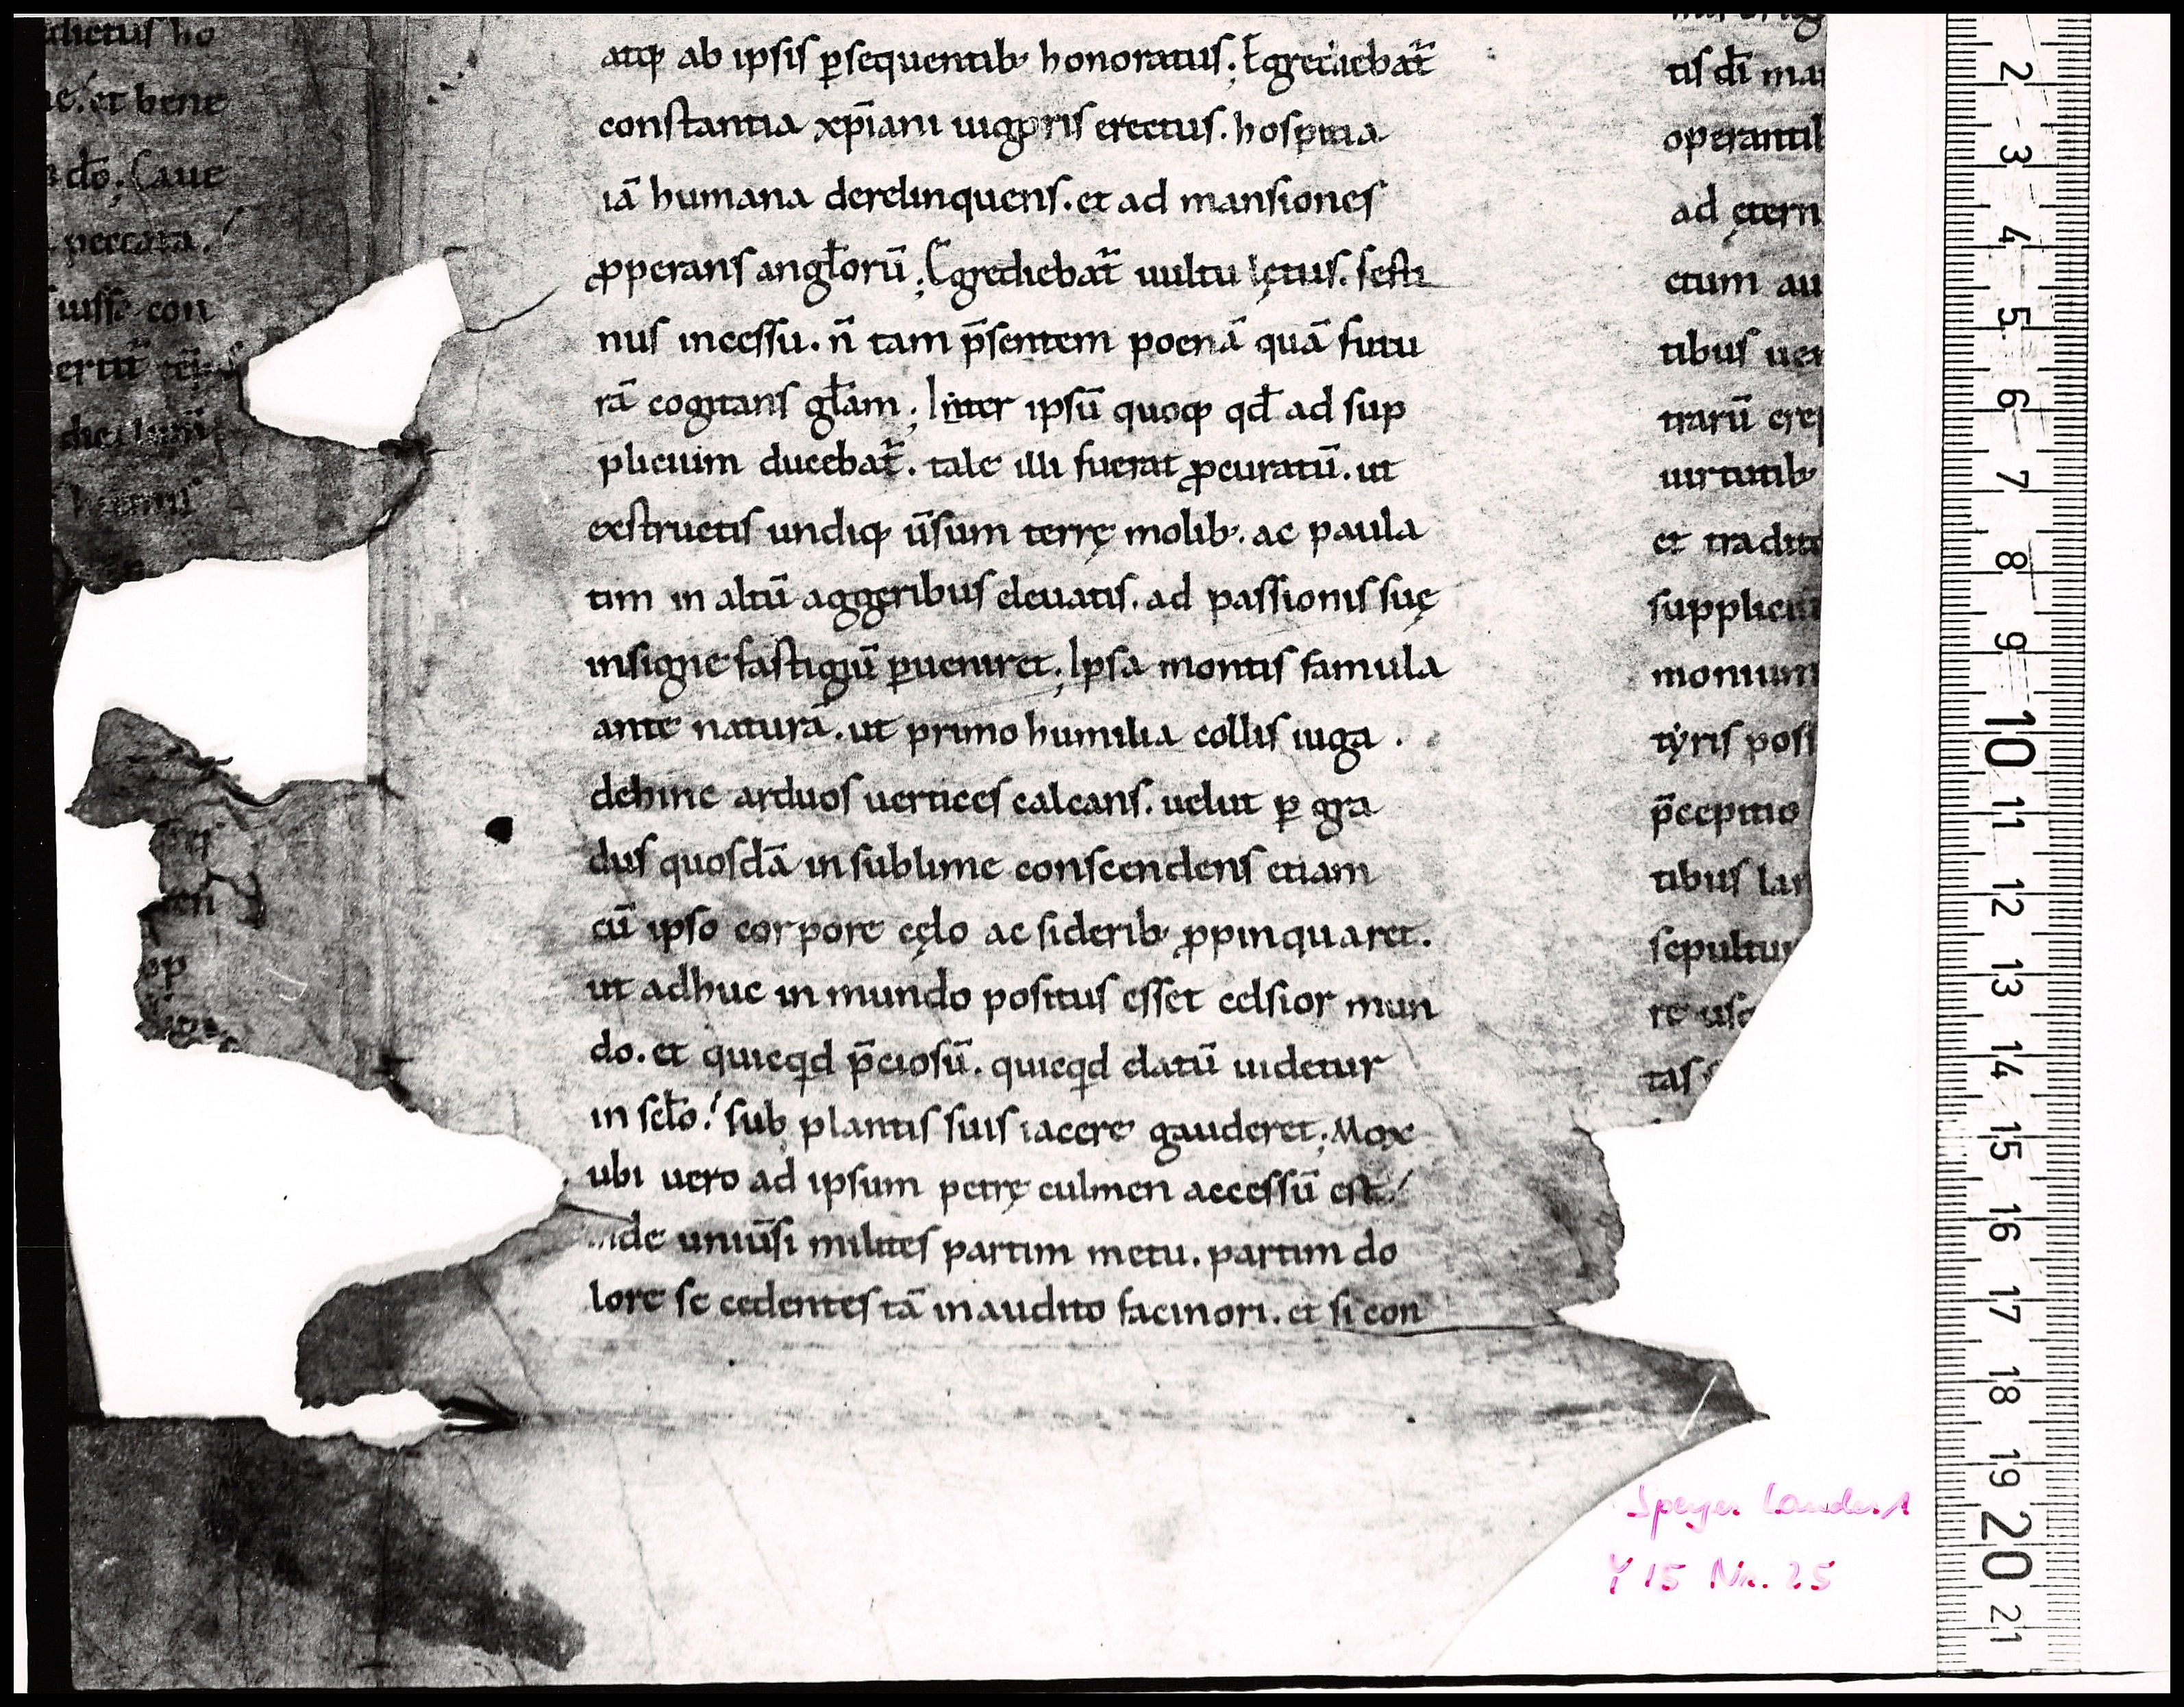 dictus ho
et bene
do; Caue
peccata.
uisse con
ertū

atq; ab ipsis ꝑsequentib; honoratus; Egrediebat᷑
constantia xp̄iani uigoris erectus. hospitia
iā humana derelinquens. et ad mansiones
ꝓperans angl̄orū; Egrediebat᷑ uultu lętus. festi
nus incessu. n̄ tam p̄sentem poenā quā futu
rā cogitans gl̄am; Inter ipsū quoq; qđ ad sup
plicium ducebat᷑. tale illi fuerat ꝓcuratū. ut
exstructis undiq; ūsum terrę molib;. ac paula
tim in altū aggeribus eleuatis. ad passionis suę
insigne fastigiū ꝑueniret; Ipsa montis famula
ante naturā. ut primo humilia collis iuga.
dehinc arduos uertices calcans. uelut ꝑ gra
dus quosdā in sublime conscendens etiam
cū ipso corpore cęlo ac siderib; ꝓpinquaret.
ut adhuc in mundo positus esset celsior mun
do. et quicqd p̄ciosū. quicqd elatū uidetur
in scl̄o! sub plantis suis iacere gauderet; Mox
ubi uero ad ipsum petrę culmen accessū est!
inde uniūsi milites partim metu. partim do
lore se cedentes tā inaudito facinori. et si con

tis dī mar
operantib
ad ętern
ctum au
tibus uer
trarū erep
uirtutib;
et tradit
suppliciū
monium
tyris posi
p̄ceptio
tibus lar
sepultur
re usq
tas

Speyer Landes A
Y 15 Nr. 25
2
3
4
5
6
7
8
9
10
11
12
13
14
15
16
17
18
19
20
21